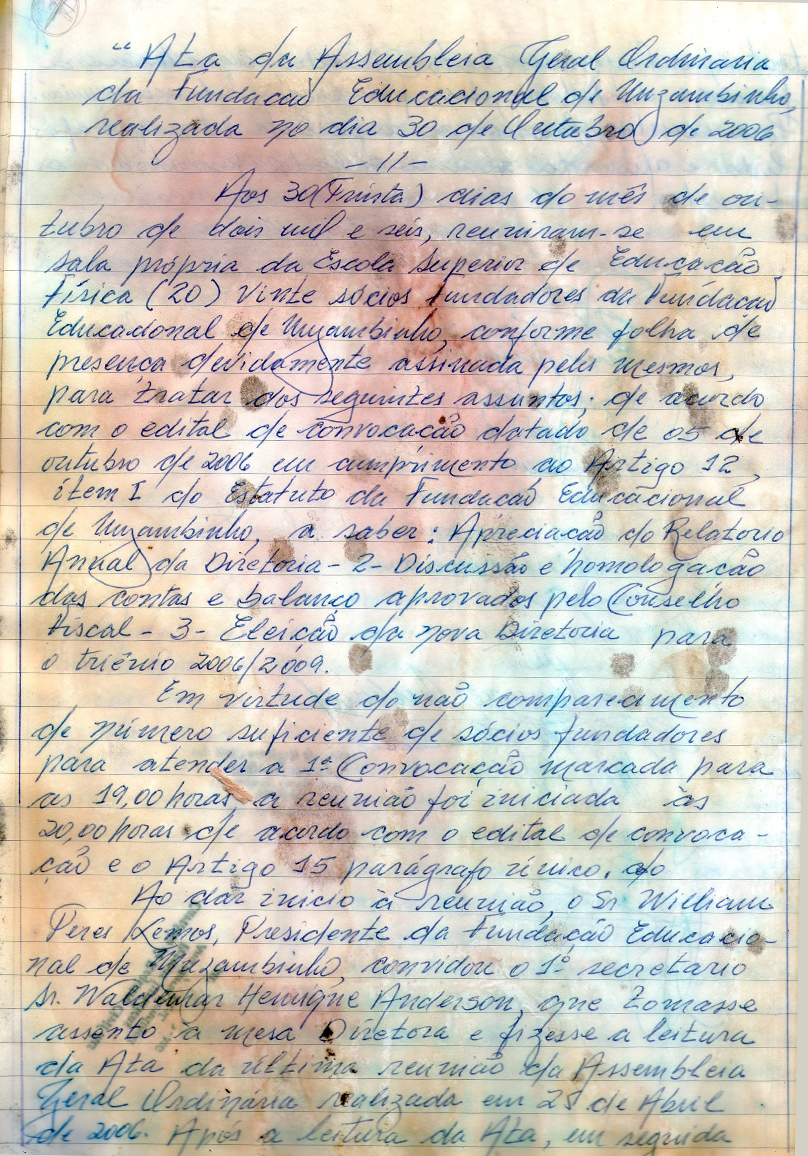 “Ata da Assembleia Geral Ordinaria
da Fundação Educacional de Muzambinho,
realizada no dia 30 de Outubro de 2006
- 11 -
Aos 30 (Trinta) dias do mês de ou-
tubro de dois mil e seis, reuniram-se em
sala própria da Escola Superior de Educação
Física (20) Vinte sócios Fundadores da Fundação
Educacional de Muzambinho, conforme folha de
presença devidamente assinada pelos mesmos,
para tratar dos seguintes assuntos: de acordo
com o edital de convocação datado de 05 de
outubro de 2006 em cumprimento ao Artigo 12,
item I do Estatuto da Fundação Educacional
de Muzambinho, a saber: Apreciação do Relatorio
Anual da Diretoria - 2 - Discussão e homologação
das contas e balanço aprovados pelo Conselho
Fiscal - 3 - Eleição da nova Diretoria para
o triênio 2006/2009.
Em virtude do não comparecimento
de número suficiente de sócios fundadores
para atender a 1ª Convocação marcada para
as 19,00 horas a reunião foi iniciada às
20,00 horas de acordo com o edital de convoca-
ção e o Artigo 15 parágrafo único. do
Ao dar inicio à reunião, o Sr. William
Peres Lemos, Presidente da Fundação Educacio-
nal de Muzambinho, convidou o 1º secretario
Sr. Waldemar Henrique Anderson, que tomasse
assento à mesa Diretora e fizesse a leitura
da Ata da última reunião da Assembleia
Geral Ordinária realizada em 25 de Abril
de 2006. Após a leitura da Ata, em seguida